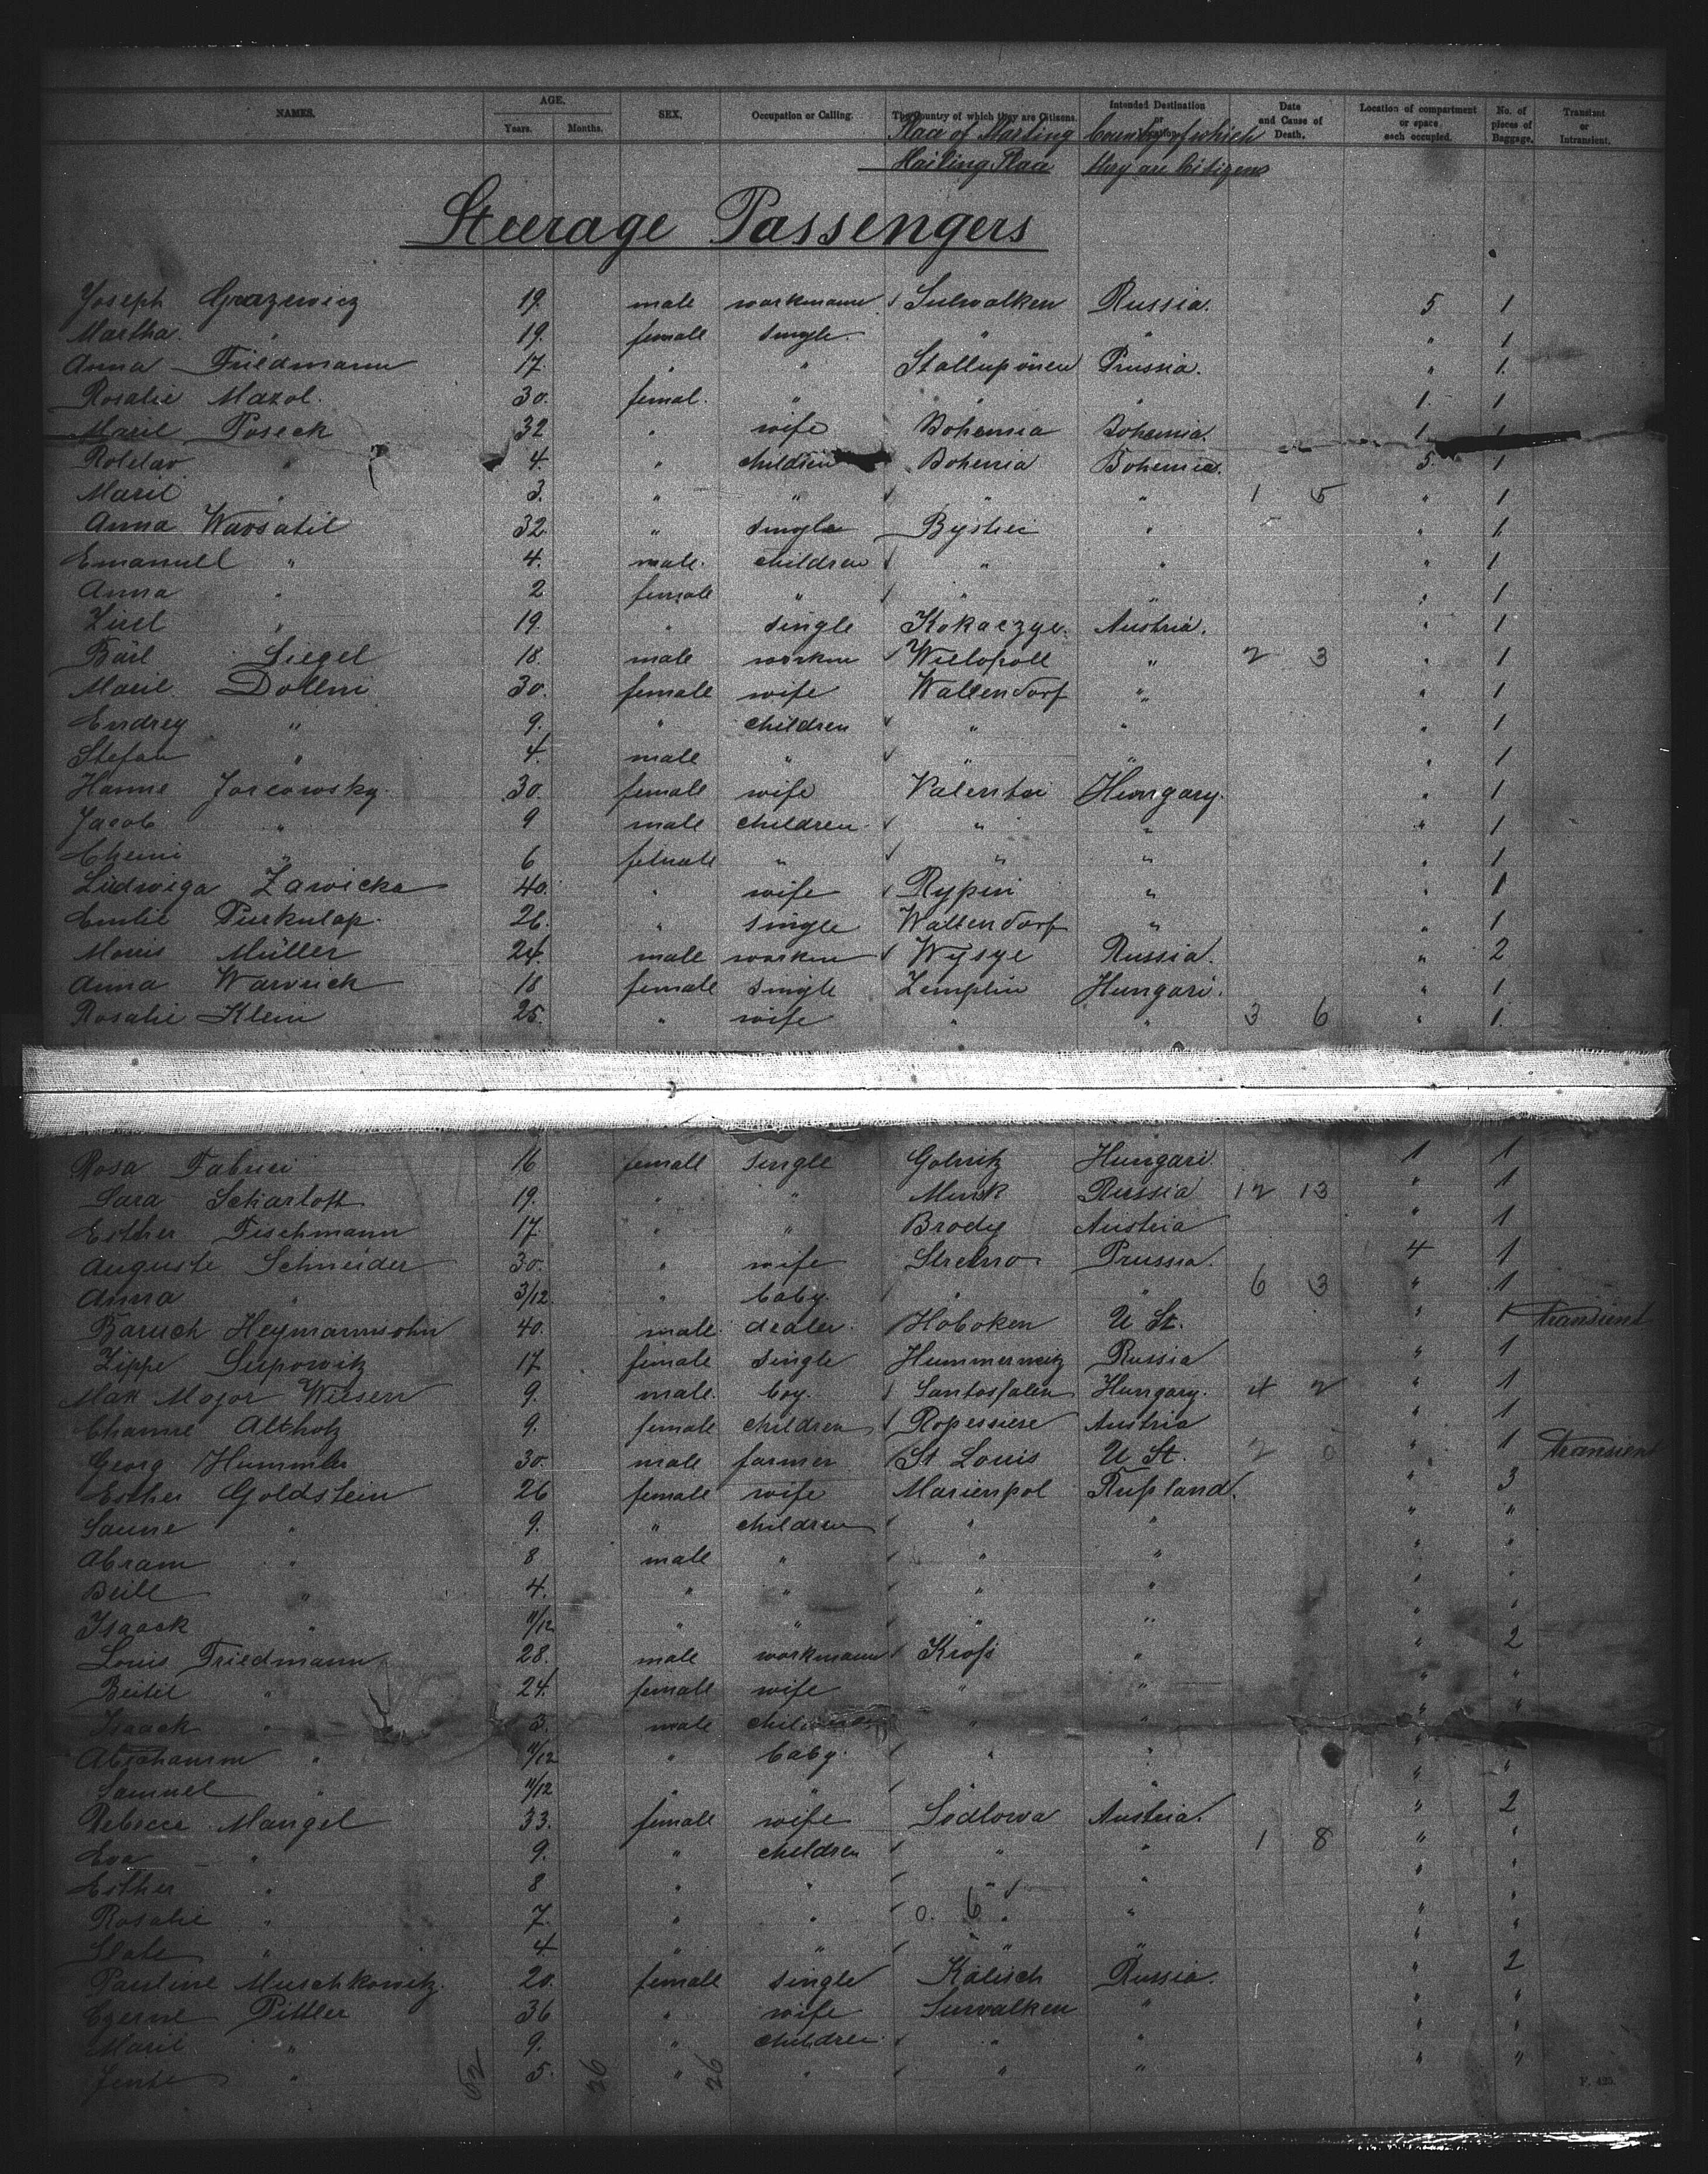 NAMES. AGE. SEX. Occupation or Calling. The Country of which they are Citizens. Intended Destination or Date and Cause of Death. Location of compartment or space each occupied. No. of pieces of Baggage. Transient or Intransient.
Years. Months.
Place of Country of which
Hailing Place they are Citizens
Steerage Passengers
Joseph Grazewicz 19. male workmann Suwalken Russia. 5 1
Martha " 19. female single " " " 1
Anna Friedmann 17. " " Stalluponen Prussia. " 1.
Rosalie Mazol. 30. femal. " " " 1. 1
Marie Poseck 32 " wife Bohemia Bohemia. 1
4. " children Bohemia Bohemia. 5. 1
Marie " 3. " " " " 1 5 " 1
Anna 32. " single " " 1.
Emanuel " 4. male. children " " " 1
Anna " 2 female " " " " 1
19. " single Austria. " 1
Siegel 18. male workm " 2 3 " 1
Marie 30. female wife Wallendorf " " 1
Endrey " 9. " children " " " 1
Stefan " 4. male " " " " 1
Hanne 30. female wife Hungary. " 1
Jacob " 9 male children " " " 1
" 6 female " " " " 1
Ludwiga Zawicka 40. " wife Rypin " " 1
Emilie 26. " single Wallendorf " " 1
Müller 24. male workm Russia. " 2
Anna 18 female single Zemplin Hungari. " 1.
Rosalie Klein 25. " wife " " 3 6 " 1.
Rosa Fabrici 16 female single Golnitz Hungari. 1 1
Sara Scharloff 19. " " Minsk Russia 12 13 " 1
Esther Fischmann 17. " " Brody Austria " 1
Auguste Schneider 30. " wife Strelno. Prussia. 4 1
Anna " 3/12. " baby. " " 6 3 " 1
Baruch Heymannsohn 40. male. dealer. Hoboken U St. " 1 transient
Zippe 17 female single Russia " 1
Max Major Wiesen 9. male. boy. Hungary. 4 2 " 1
Channe Altholz 9. female children Austria " 1
Georg Hummler 30. male farmer St. Louis U St. " 1 transient
Esther Goldstein 26 female wife Marienpol Rußland. " 3
" 9. " children " " " "
Abram " 8 male " " " " "
Beile " 4. " " " " " "
Isaack " 11/12 " " " " " "
Louis Friedmann 28. male workmann Kroß " " 2
24. female wife " " " "
Isaack " 3. male children " " " "
Abrahamm " 11/12 " baby. " " " "
Samuel " 11/12 " " " " " "
Rebecca Mangel 33. female wife Austria. " 2
Eva " 9. " children " " 1 8 " "
Esther " 8 " " " " " "
Rosalie " 7. " " 0. 6 " " " "
" 4. " " " " " "
Pauline Muschkowitz. 20. female single Kalisch Russia. " 2
Pittler 36 " wife Suwalken " " "
Marie " 9. " children. " " " "
Jente " 5. " " " " " "
52 26 26
F. 425.